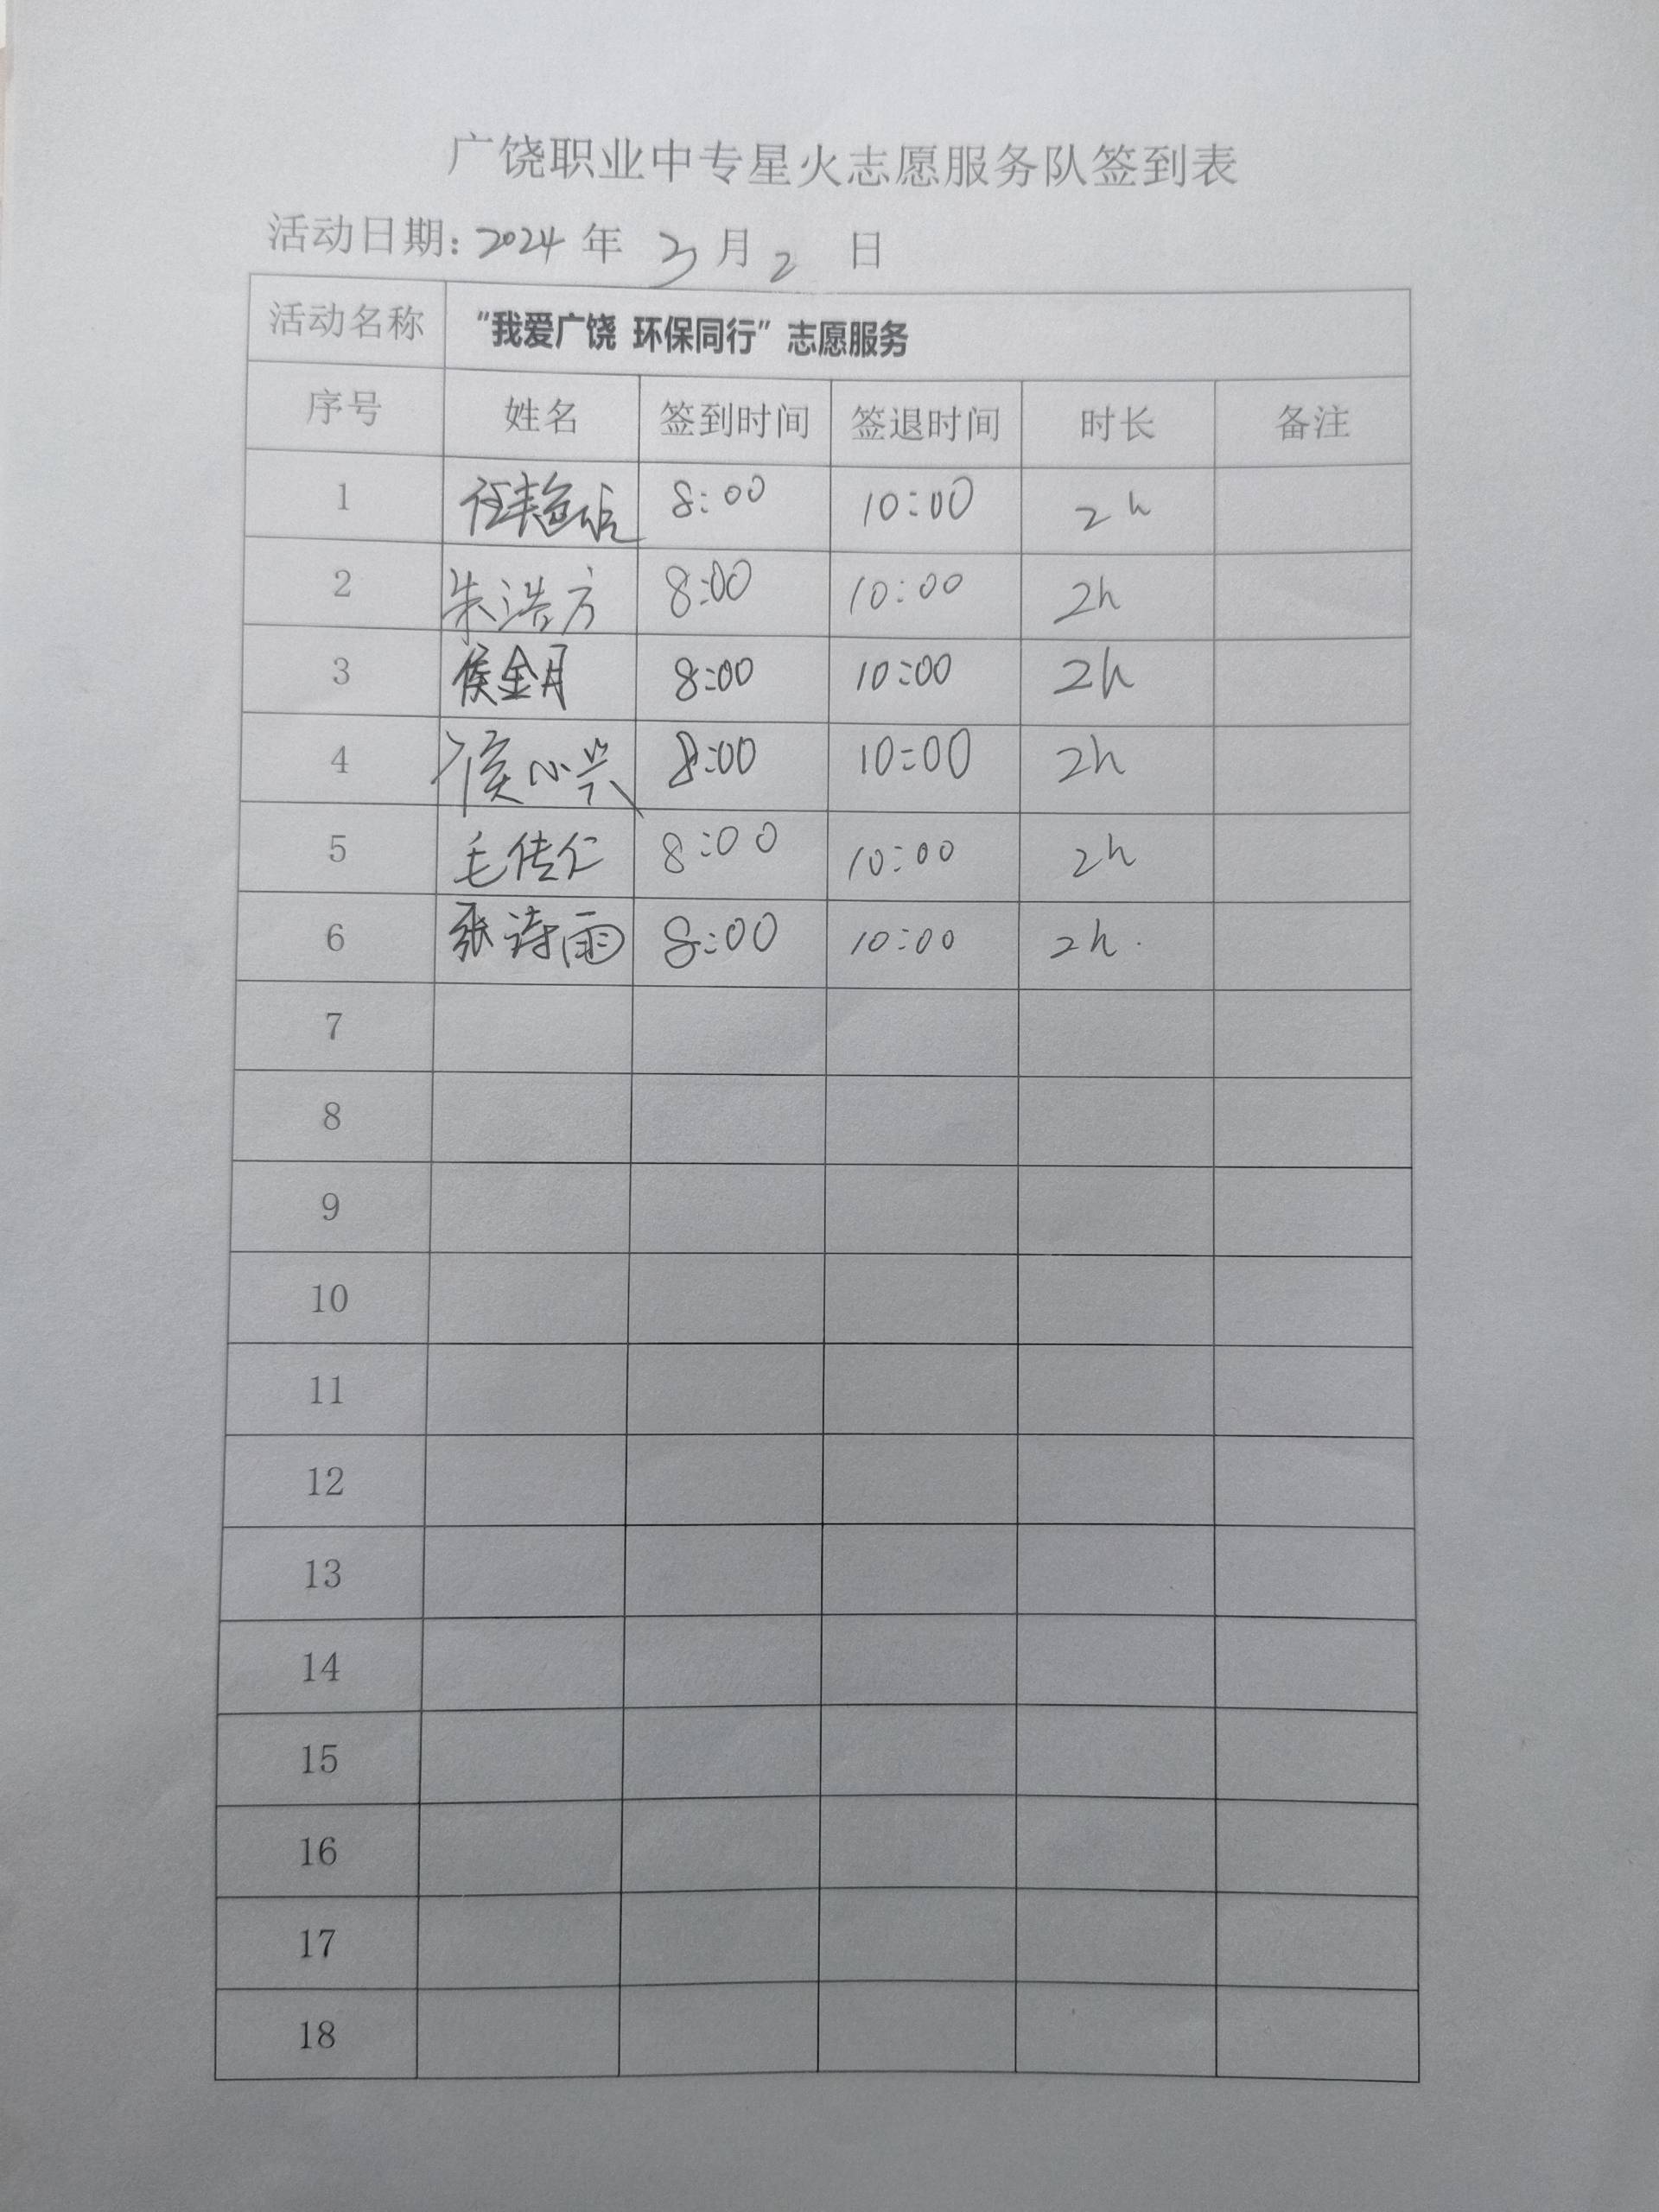 广饶职业中专星火志愿服务队签到表
活动日期：2024 年 3 月 2 日
活动名称 “我爱广饶 环保同行”志愿服务
序号 姓名 签到时间 签退时间 时长 备注
1 8:00 10:00 2h
2 朱浩方 8:00 10:00 2h
3 侯金月 8:00 10:00 2h
4 侯心兴 8:00 10:00 2h
5 毛传仁 8:00 10:00 2h
6 张诗雨 8:00 10:00 2h.
7
8
9
10
11
12
13
14
15
16
17
18